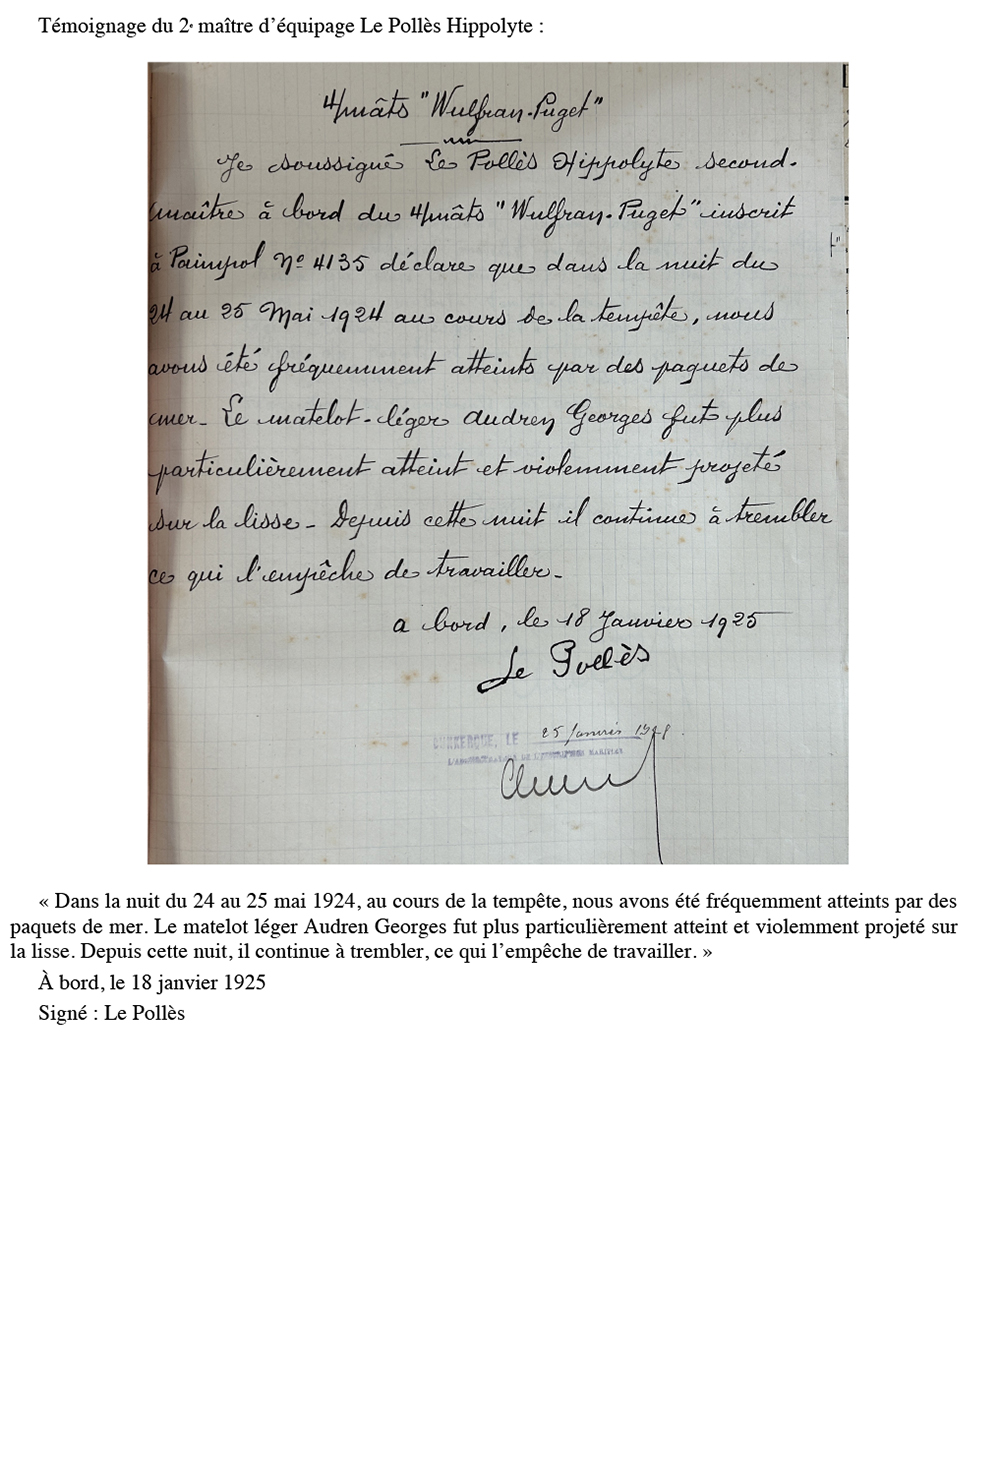 Témoignage du 2e maître d’équipage Le Pollès Hippolyte :
4/mâts "Wulfran-Puget"
Je soussigné Le Pollès Hippolyte second-
maître à bord du 4/mâts "Wulfran-Puget" inscrit
à Paimpol No 4135 déclare que dans la nuit du
24 au 25 Mai 1924 au cours de la tempête, nous
avons été fréquemment atteints par des paquets de
mer_ Le matelot-léger Audren Georges fut plus
particulièrement atteint et violemment projeté
sur la lisse_ Depuis cette nuit il continue à trembler
ce qui l'empêche de travailler_
a bord, le 18 Janvier 1925
Le Pollès
DUNKERQUE, LE 25 Janvier
L'ADMINISTRATEUR DE L'INSCRIPTION MARITIME
« Dans la nuit du 24 au 25 mai 1924, au cours de la tempête, nous avons été fréquemment atteints par des
paquets de mer. Le matelot léger Audren Georges fut plus particulièrement atteint et violemment projeté sur
la lisse. Depuis cette nuit, il continue à trembler, ce qui l’empêche de travailler. »
À bord, le 18 janvier 1925
Signé : Le Pollès